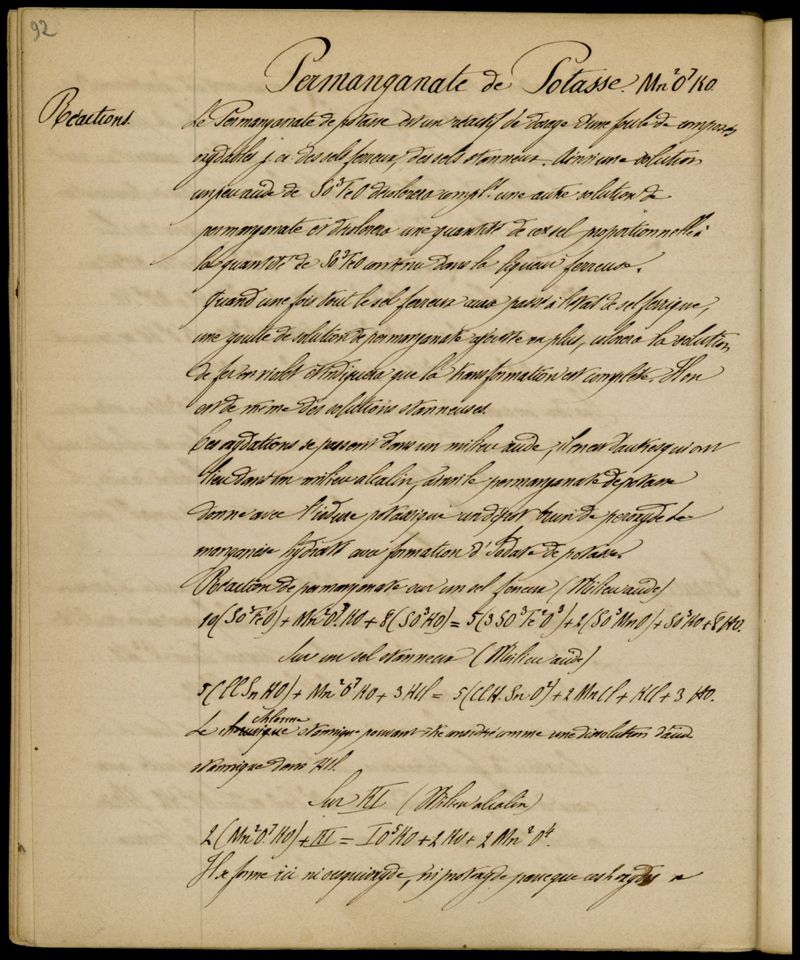 92
Permanganate de Potasse. Mn²O⁷KO.
Réactions.
Le Permanganate de potasse est un réactif de dosage d'une foule de composés
oxydables, des sels ferreux, des sels stanneux. Ainsi une solution
un peu acide de SO³FeO décolorera compl.ᵗ une autre solution de
permanganate et décolorera une quantité de ce sel proportionnelle à
la quantité de SO³FeO contenu dans la liqueur ferreuse.
Quand une fois tout le sel ferreux aura passé à l'état de sel ferrique,
une goutte de solution de permanganate ajoutée en plus, colorera la solution
de fer en violet et indiquera que la transformation est complète. Il en
est de même des solutions stanneuses.
Ces oxydations se passent dans un milieu acide, il en est d'autres qui ont
lieu dans un milieu alcalin, ainsi le permanganate de potasse
donne avec l'iodure potassique un dépôt brun de peroxyde de
manganèse hydraté avec formation d'Iodate de potasse.
Réaction de permanganate sur un sel ferreux (Milieu acide)
10(SO³FeO) + Mn²O⁷KO + 8(SO³HO) = 5(3SO³Fe²O³) + 2(SO³MnO) + SO³KO + 8HO.
Sur un sel stanneux (Milieu acide)
5(ClSnHO) + Mn²O⁷KO + 3HCl = 5(ClH.SnO²) + 2MnCl + KCl + 3HO.
Le chlorure stannique pouvant être considéré comme une dissolution d'acide
stannique dans HCl.
Sur KI (Milieu alcalin)
2(Mn²O⁷KO) + KI = IO⁵KO + 2KO + 2Mn²O⁴.
Il se forme ici ni sesquioxyde, ni protoxyde parceque ces oxydes